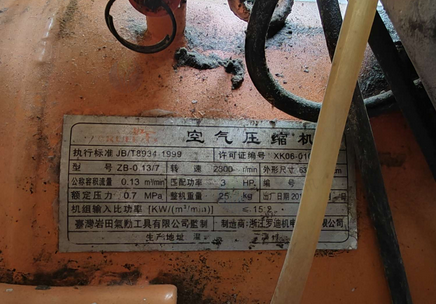 空气压缩机
执行标准 JB/T8934-1999 许可证编号 XK06-01
型号 ZB-0.13/7 转速 2300 r/min 外形尺寸 63
公称容积流量 0.13 m³/min 匹配功率 3 HP. 编号
额定压力 0.7 MPa 整机重量 25 kg 出厂日期 20
机组输入比功率 [KW/(m³/min)] ≤ 15.8
臺灣岩田氣動工具有限公司監制 制造商: 浙江罗迪机电 有限公司
生产地址